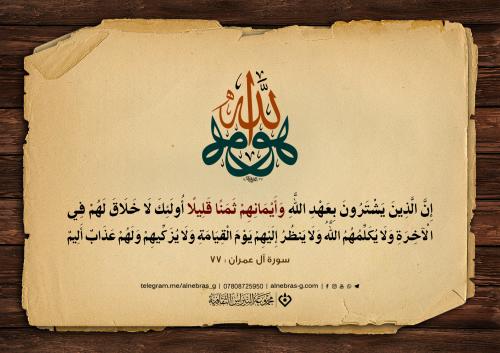 إِنَّ الَّذِينَ يَشْتَرُونَ بِعَهْدِ اللَّهِ وَأَيْمَانِهِمْ ثَمَنًا قَلِيلًا أُولَئِكَ لَا خَلَاقَ لَهُمْ فِي
الْآخِرَةِ وَلَا يُكَلِّمُهُمُ اللَّهُ وَلَا يَنظُرُ إِلَيْهِمْ يَوْمَ الْقِيَامَةِ وَلَا يُزَكِّيهِمْ وَلَهُمْ عَذَابٌ أَلِيمٌ
سورة آل عمران : ٧٧
telegram.me/alnebras_g | 07808725950 | alnebras-g.com |
مجموعة النبراس الثقافية